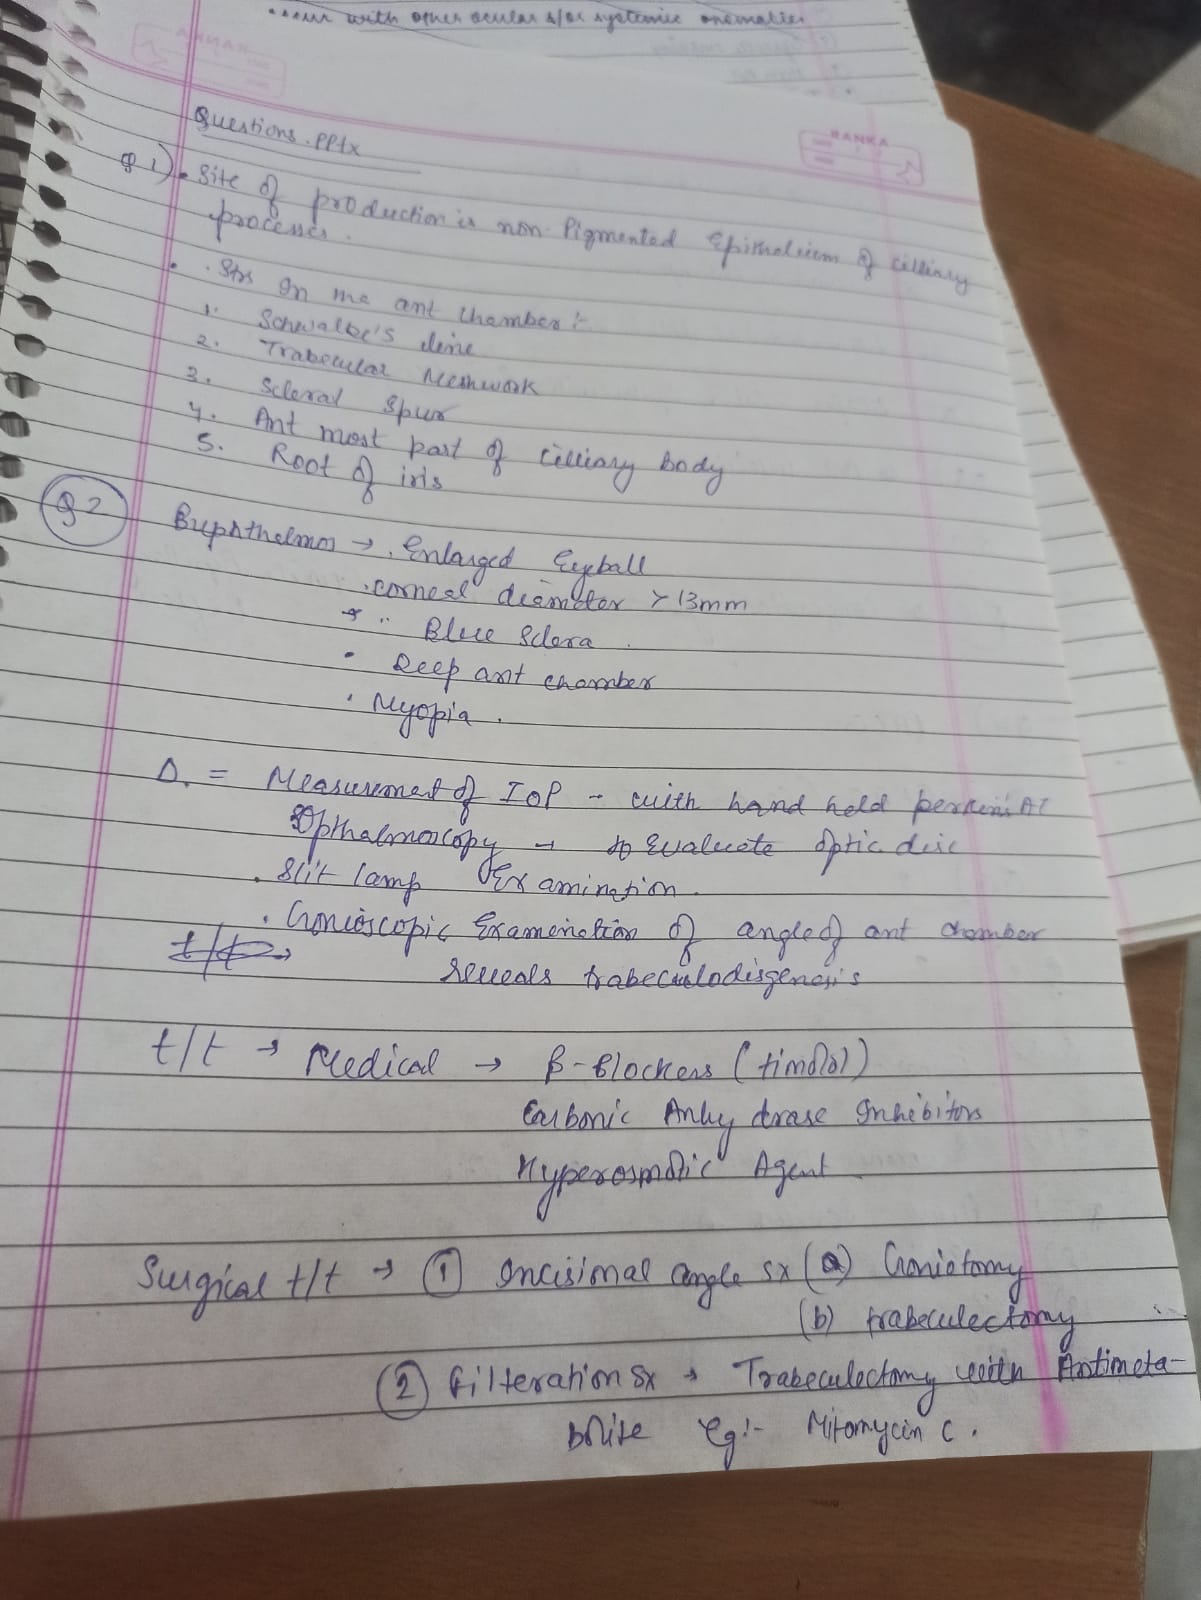 occur with other ocular &/or systemic anomalies
RANKA
Questions.pptx
Q 1) • Site of production is non-Pigmented Epithelium of cilliary
processes.
• Strs In the ant chamber :-
1. Schwalbe's line
2. Trabecular Meshwork
3. Scleral Spur
4. Ant most part of cilliary body
5. Root of iris
Q2 Bupthalmos → . Enlarged Eyeball
. corneal diameter > 13mm
Blue Sclera.
• Deep ant chamber
• Myopia.
D. = Measurement of IOP - with hand held perkin's AT
Opthalmoscopy → to Evaluate optic disc
. Slit lamp Examination.
. Gonioscopic Examination of angle of ant chamber
t/t →
reveals trabeculodisgenesis
t/t → Medical → β-Blockers (timolol)
Carbonic Anhydrase Inhibitors
Hyperosmotic Agent
Surgical t/t → ① Incisional angle sx (a) Goniotomy
(b) trabeculectomy
② Filteration sx → Trabeculectomy with Antimeta-
bolite eg:- Mitomycin C.